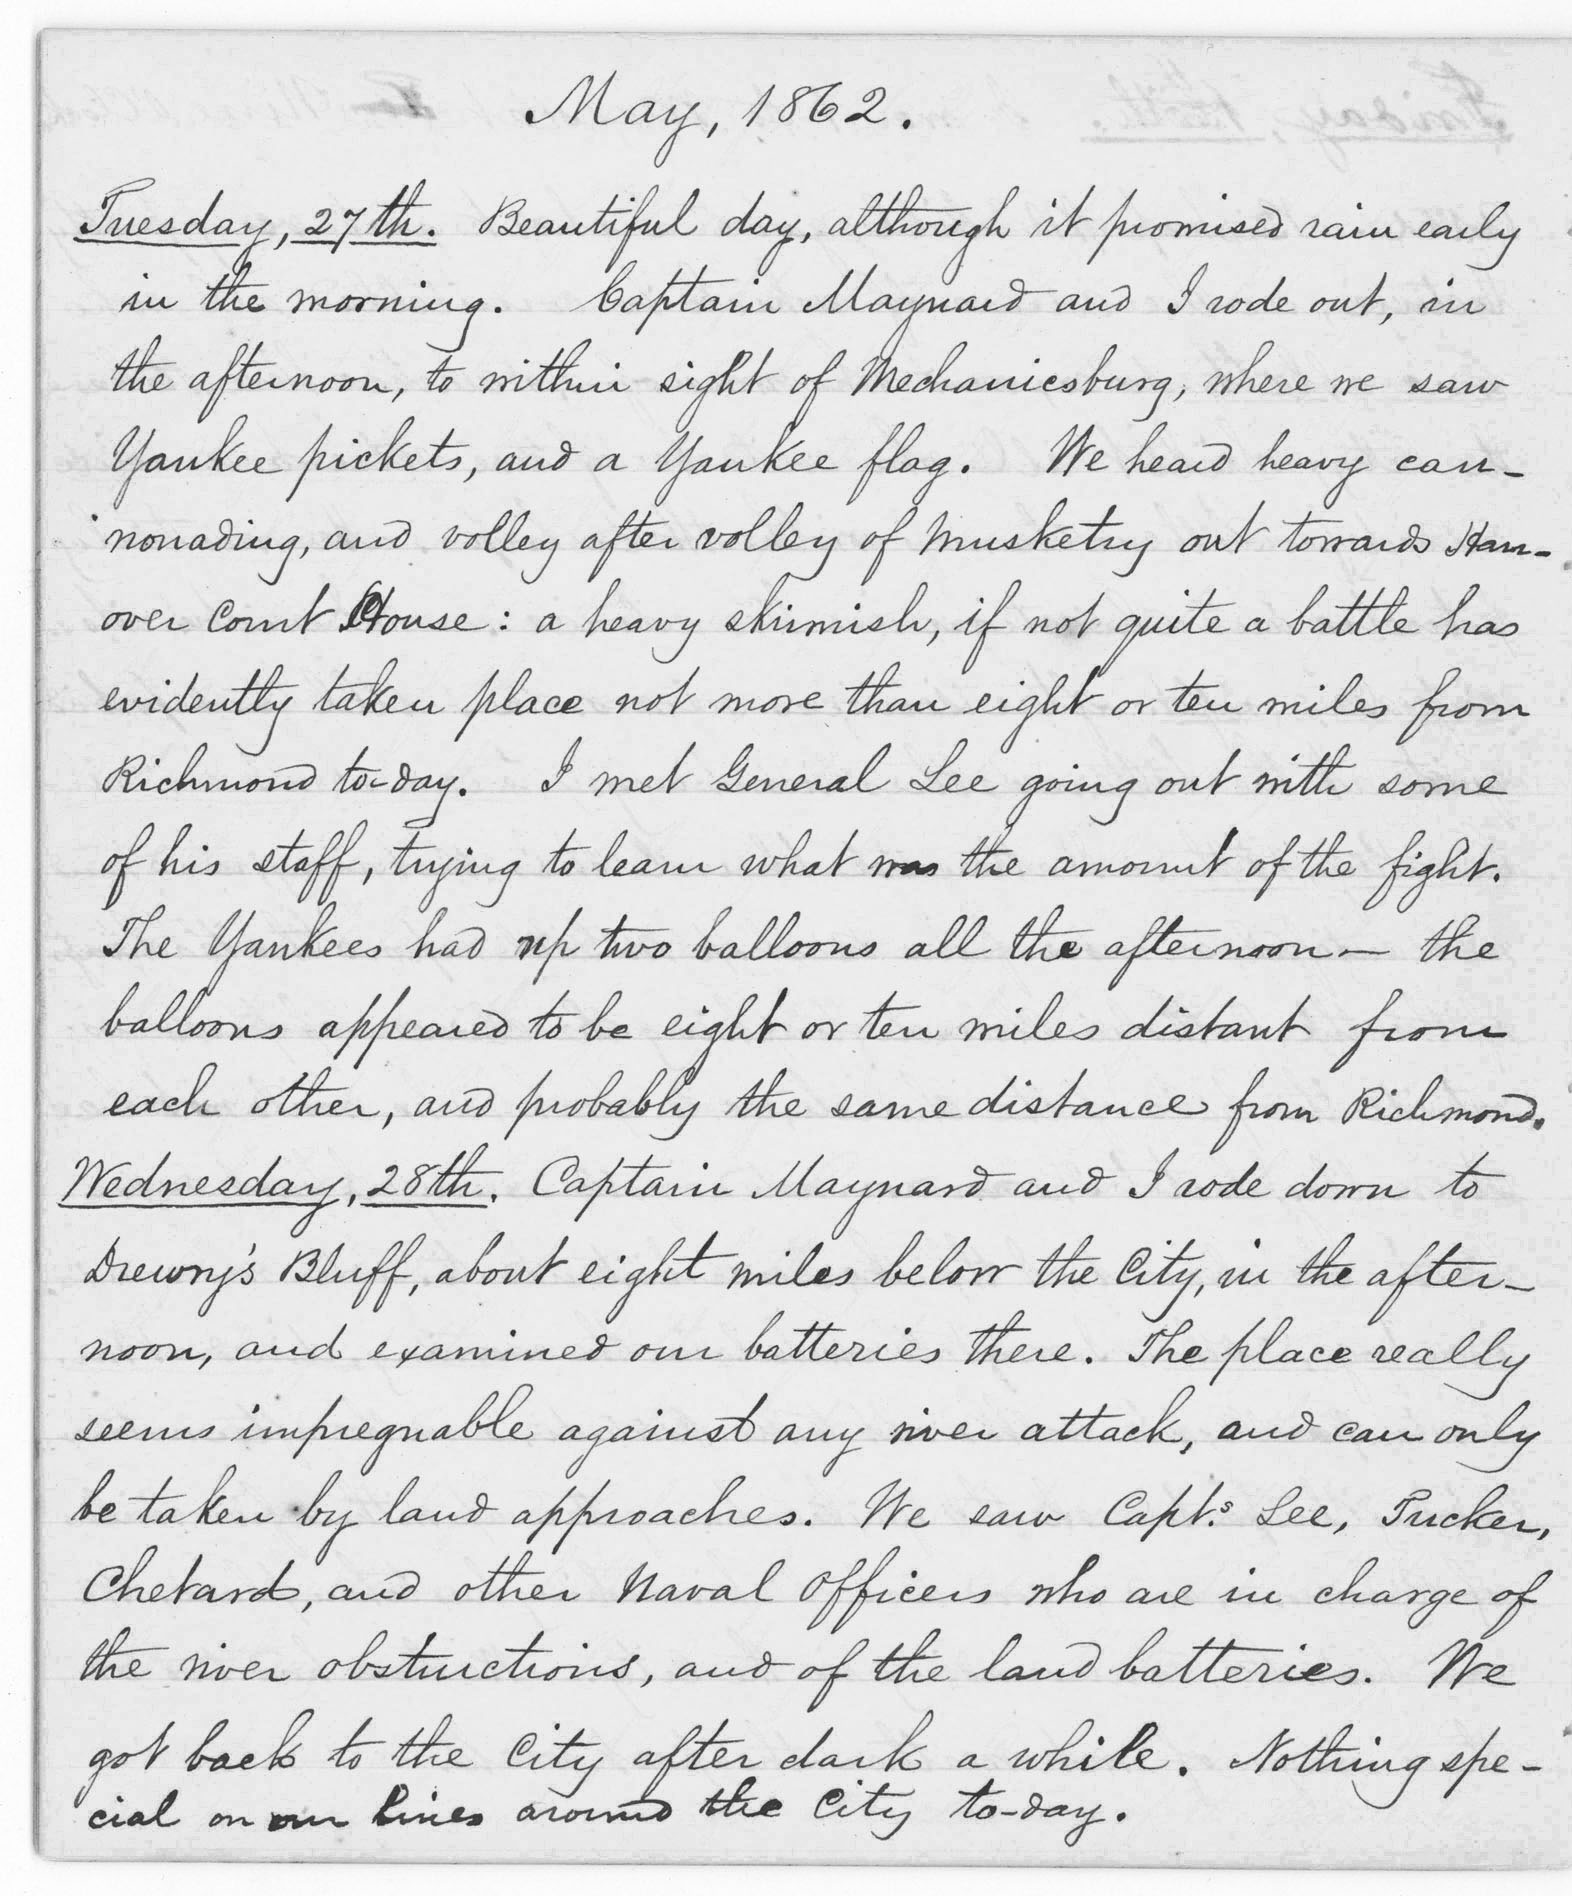 May, 1862.
Tuesday, 27th. Beautiful day, although it promised rain early
in the morning. Captain Maynard and I rode out, in
the afternoon, to within sight of Mechanicsburg, where we saw
Yankee pickets, and a Yankee flag. We heard heavy can-
nonading, and volley after volley of musketry out towards Han-
over Court House: a heavy skirmish, if not quite a battle has
evidently taken place not more than eight or ten miles from
Richmond to-day. I met General Lee going out with some
of his staff, trying to learn what was the amount of the fight.
The Yankees had up two balloons all the afternoon — the
balloons appeared to be eight or ten miles distant from
each other, and probably the same distance from Richmond.
Wednesday, 28th. Captain Maynard and I rode down to
Drewry's Bluff, about eight miles below the City, in the after-
noon, and examined our batteries there. The place really
seems impregnable against any river attack, and can only
be taken by land approaches. We saw Capt.s Lee, Tucker,
Chetard, and other Naval Officers who are in charge of
the river obstructions, and of the land batteries. We
got back to the City after dark a while. Nothing spe-
cial on our lines around the City to-day.